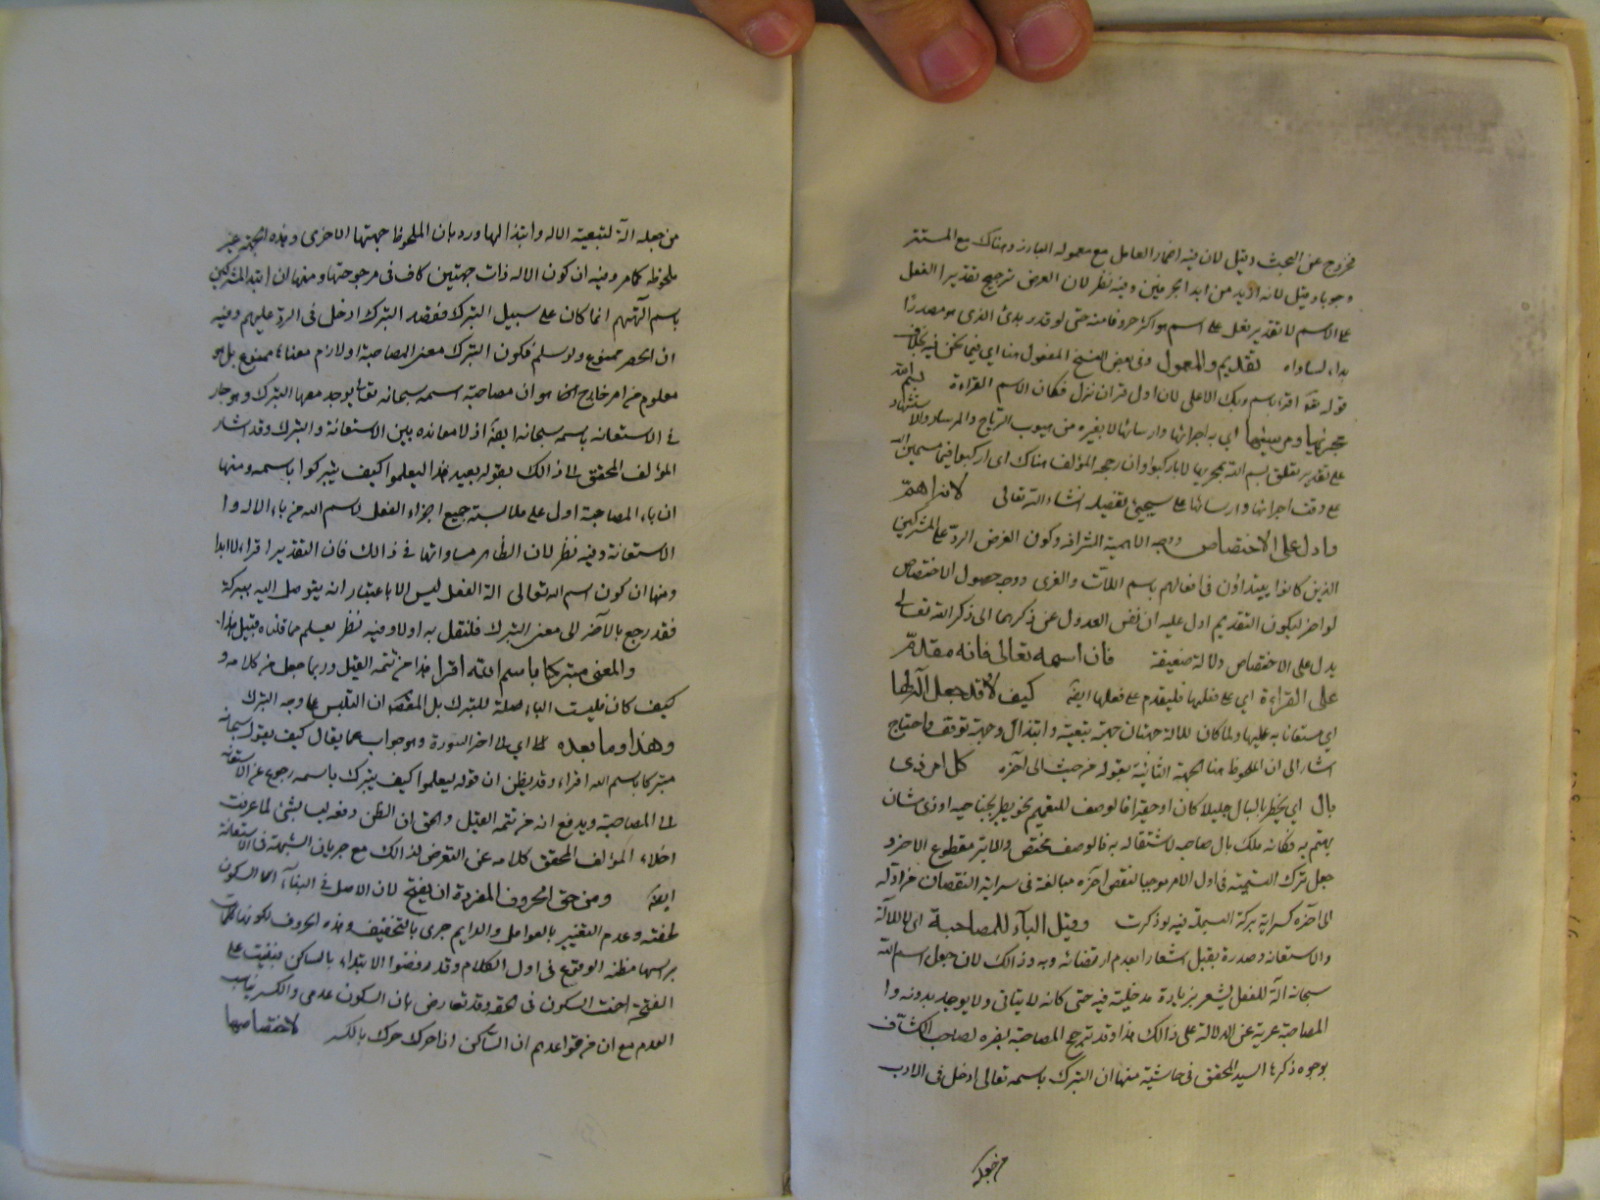 خروج عن البحث وقيل لان فيه اضمار العامل مع معموله البارز وهناك مع المستتر
وجوبا وقيل لانه ازيد من ابدا بحرفين وفيه نظر لان الغرض ترجيح تقدير الفعل
على الاسم لا تقدير فعل على اسم هو اكثر حروفا منه حتى لو قدر بدئ الذى هو مصدر
بداء لساواه تقديم المعمول وفى بعض النسخ المفعول هنا اى فيما نحن فيه بخلاف
قوله اقراء باسم ربك الاعلى لان اول قران نزل فكان الاهم القراءة بسم الله
مجريها ومرسيها اى به اجرائها وارسائها لا بغيره من هبوب الرياح والمرساد والاستشهاد
على تقدير تعلق بسم الله بمجريها لا باركبوا وان رجحه المؤلف هناك اى اركبوا فيها مسمين الله
على وقت اجرائها وارسائها على سيجيئ تفصيله انشاء الله تعالى لانه اهمّ
وادل على الاختصاص وجه الاهمية الشرافة وكون الغرض الردّ على المشركين
الذين كانوا يبتداؤن فى افعالهم باسم اللآت والعزى ووجه حصول الاختصاص
لو اخر ليكون التقديم ادل عليه ان نفس العدول عن ذكرهما الى ذكر الله تعالى
يدل على الاختصاص دلالة ضعيفة فان اسمه تعالى فانه مقدم
على القراءة اى على فعلها فليقدم على فعلها ايضا كيف لا وقد جعل آلة لها
اى مستعانا به عليها ولما كان للالة جهتان جهة تبعية وابتذال وجهة توقف واحتياج
اشار الى ان الملحوظ هنا الجهة الثانية بقوله من حيث الى آخره كل امر ذى
بال اى يخطر بالبال جليلا كان او حقيرا فالوصف للتعميم نحو يطير بجناحيه او ذى شان
يهتم به فكانه ملك بال صاحبه لاشتغاله به فالوصف مختص والابتر مقطوع الاخر و
جعل ترك التسمية فى اول الامر موجبا لنقص آخره مبالغة فى سراية النقصان من اوله
الى آخره كسراية بركة البسملة فيه لو ذكرت وقيل الباء للمصاحبة اى لا للآلة
والاستعانة وصدره بقيل اشعارا بعدم ارتضائه وجه ذالك لان جعل اسم الله
سبحانه آلة للفعل يشعر بزيادة مدخلية فيه حتى كانه لا يتاتى ولا يوجد بدونه وا
المصاحبة عرية عن الدلالة على ذالك هذا وقد ترجح المصاحبة نصره لصاحب الكشاف
بوجوه ذكرها السيد المحقق فى حاشيته منها ان التبرك باسمه تعالى ادخل فى الادب
من جعله
من جعله آلة لتبعية الاله وابتذالها ورد بان الملحوظ جهتها الاخرى وهذه الجهة غير
ملحوظة كما مر وفيه ان كون الاله ذات جهتين كاف فى مرجوحتها ومنها ان ابتداء المشركين
باسم آلهتهم انما كان على سبيل التبرك فقصد التبرك ادخل فى الردّ عليهم وفيه
ان الحصر ممنوع ولو سلم فكون التبرك معنى المصاحبة او لازم معناه ممنوع بل هو
معلوم من امر خارج انما هو ان مصاحبة اسمه سبحانه تعالى يوجد معها التبرك وهو جار
فى الاستعانه باسمه سبحانه ايضا اذ لا معانده بين الاستعانة والتبرك وقد اشار
المؤلف المحقق الى ذالك بقوله بعيد هذا ليعلموا كيف يتبركوا باسمه ومنها
ان باء المصاحبة ادل على ملابسة جميع اجزاء الفعل لاسم الله من باء الاله وا
الاستعانة وفيه نظر لان الظاهر مساواتها فى ذالك فان التقدير اقراء لا ابدا
ومنها ان كون اسم الله تعالى الة الفعل ليس الا باعتبار انه يتوصل اليه ببركة
فقد رجع بالآخر الى معنى التبرك فلنقل به اولا وفيه نظر يعلم مما قلناه قبيل هذا
والمعنى متبركا باسم الله اقرا هذا من تتمه القيل وربما جعل من كلامه و
كيف كان فليست الباء صلة للتبرك بل المقصود ان التلبس على وجه التبرك
وهذا وما بعده الى اى الى اخر السورة وهو جواب عما يقال كيف يقول سبحانه
متبركا باسم الله اقراء وقد يظن ان قوله ليعلموا كيف يتبرك باسمه رجوع عن الاستعانة
الى المصاحبة ويدفع انه من تتمه القيل والحق ان الظن ودفعه ليسا بشئ لما عرفت
اخلاء المؤلف المحقق كلامه عن التعرض لذالك مع جريان الشبهة فى الاستعانة
ايضا ومن حق الحروف المفردة ان يفتح لان الاصل فى البناء السكون
لخفته وعدم التغيير بالعوامل والدايم جرى بالتخفيف وهذه الحروف لكونها كلمات
براسها مظنه الوقوع فى اول الكلام وقد رفضوا الابتداء بالساكن فبنيت على
الفتحة اخت السكون فى الخفه وقد تعارض بان السكون عدمى والكسر يناسب
العدم مع ان من قواعدهم ان الساكن اذا حرك حرك بالكسر لاختصاصها